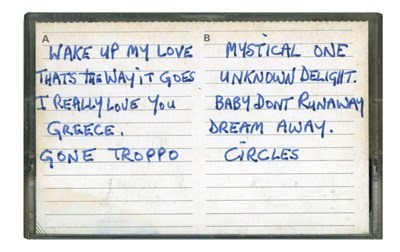 A
WAKE UP MY LOVE
THATS THE WAY IT GOES
I REALLY LOVE YOU
GREECE.
GONE TROPPO
B
MYSTICAL ONE
UNKNOWN DELIGHT.
BABY DONT RUNAWAY
DREAM AWAY.
CIRCLES